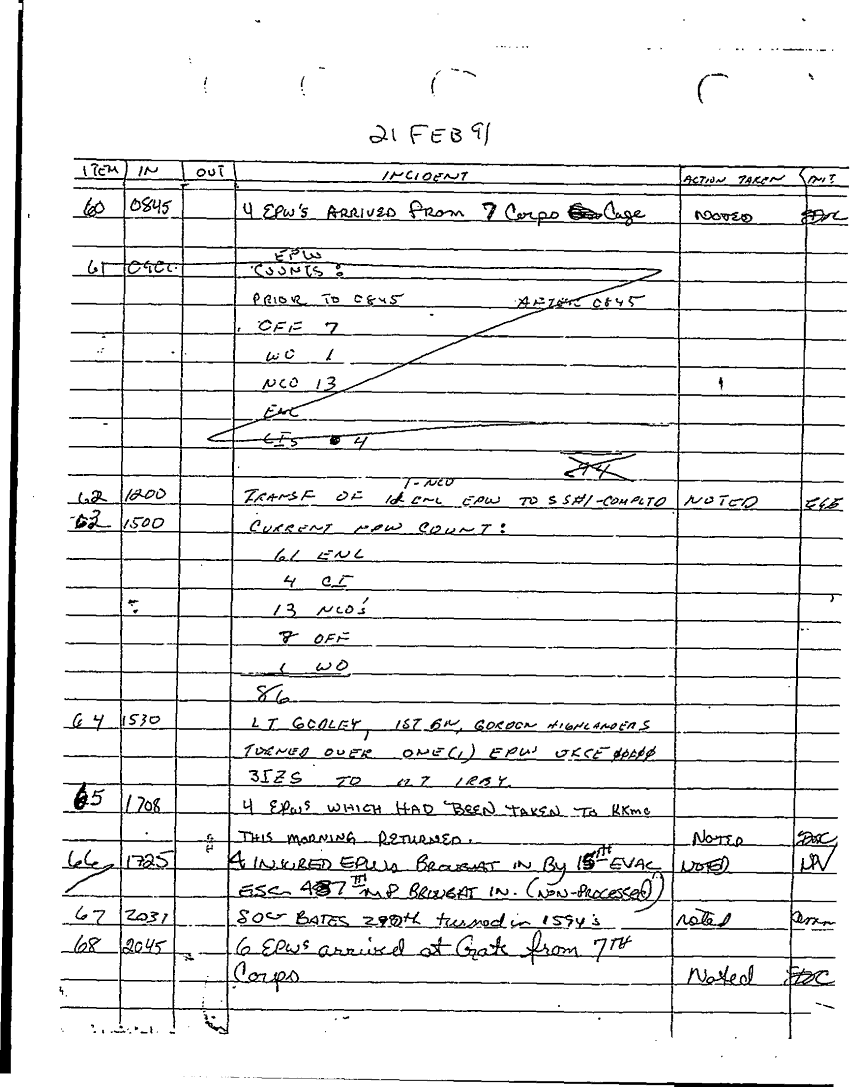 21 FEB 91
ITEM IN OUT INCIDENT ACTION TAKEN INIT
60 0845 4 EPW'S ARRIVED FROM 7 Corps Cage NOTED
EPW
61 COUNTS:
PRIOR TO 0845 AFTER 0845
OFF 7
WO 1
NCO 13
ENL
CIs 4
94
1-NCO
62 1200 TRANSF OF ENL EPW TO SSH1-COMPLTD NOTED
63 1500 CURRENT EPW COUNT:
61 ENL
4 CI
13 NCO'S
OFF
1 WO
86
64 1530 LT GODLEY, 1ST BN, GORDON HIGHLANDERS
TURNED OVER ONE(1) EPW
TO IRBY.
65 1708 4 EPWS WHICH HAD BEEN TAKEN TO KKMC
THIS MORNING RETURNED. NOTED
66 1725 4 INJURED EPWS BROUGHT IN BY 15TH EVAC NOTED
ESC. TH MP BROUGHT IN. (NON-PROCESSED)
67 2031 BATES turned in 1594's noted
68 2045 6 EPWS arrived at Gate from 7TH
Corps Noted